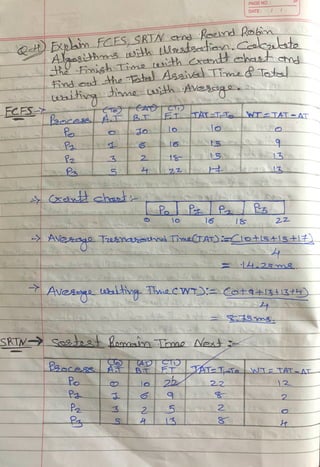 PAGE NO.
DATE: / /
Q.4) Explain FCFS, SRTN and Round Robin
Algorithms with illustration. Calculate
the Finish Time with Grantt chart and
Find out the Total Assival Time & Total
waiting time with Average.
FCFS → (T0) (ΔT) (T1)
Process A.T B.T F.T TAT=T1-T0 WT=TAT-ΔT
P0 0 10 10 10 0
P1 1 6 16 15 9
P2 3 2 18 15 13
P3 5 4 22 17 13
→ Grantt chart:-
P0 P1 P2 P3
0 10 16 18 22
→ Average Turnaround Time(TAT):=(10+15+15+17)
4
= 14.25ms.
→ Average waiting Time(WT):= (0+9+13+13)
4
= 8.75ms.
SRTN → Sostest Remain Time Next :-
(T0) (ΔT) (T1)
Process A.T B.T F.T TAT=T1-T0 WT=TAT-ΔT
P0 0 10 22 22 12
P1 1 6 9 8 2
P2 3 2 5 2 0
P3 5 4 13 8 4